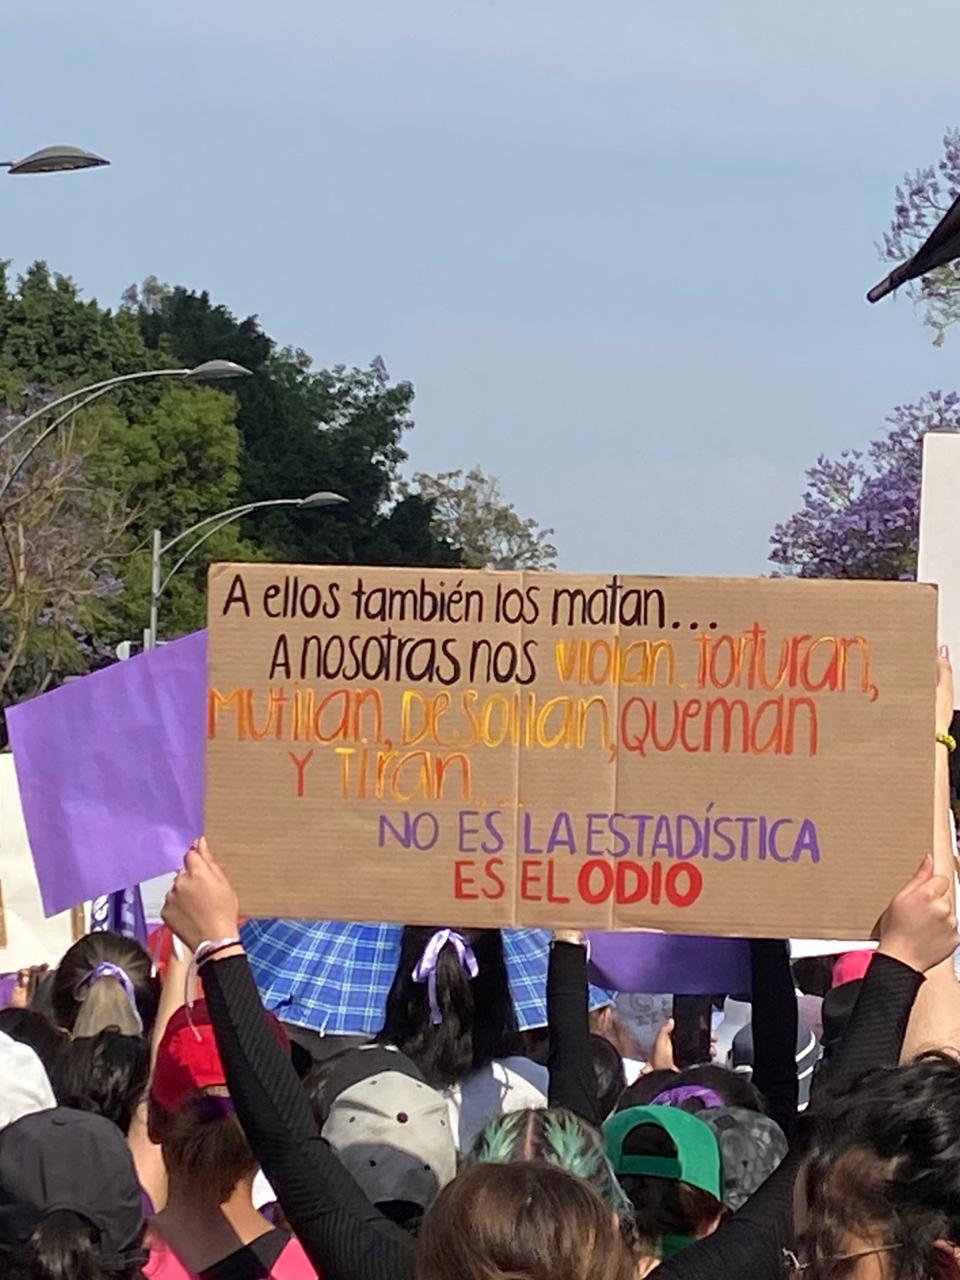 A ellos también los matan...
A nosotras nos violan, torturan,
Mutilan, Desollan, Queman
Y Tiran...
NO ES LA ESTADÍSTICA
ES EL ODIO